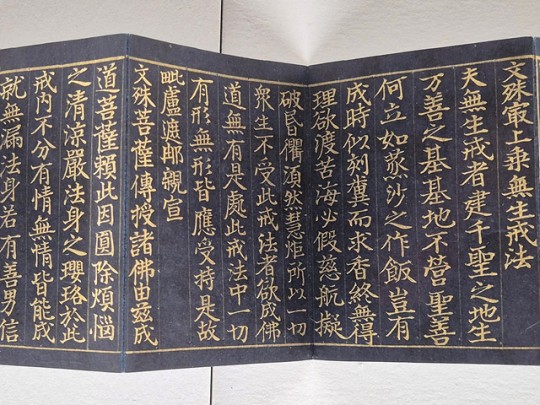 文殊㝡上乗無生戒法
夫無生戒者建千聖之地生
万善之基基地不营聖善
何立如蒸沙之作飯豈有
成時似刻糞而求香終無得
理欲渡苦海必假慈航擬
破昏衢湏然慧炬所以一切
衆生不受此戒法者欲成佛
道無有是處此戒法中一切
有形無形皆應受持是故
毗盧遮那親宣
文殊菩薩傳授諸佛由兹成
道菩薩賴此因圓除煩惱
之清涼嚴法身之瓔珞於此
戒內不分有情無情皆能成
就無漏法身若有善男信